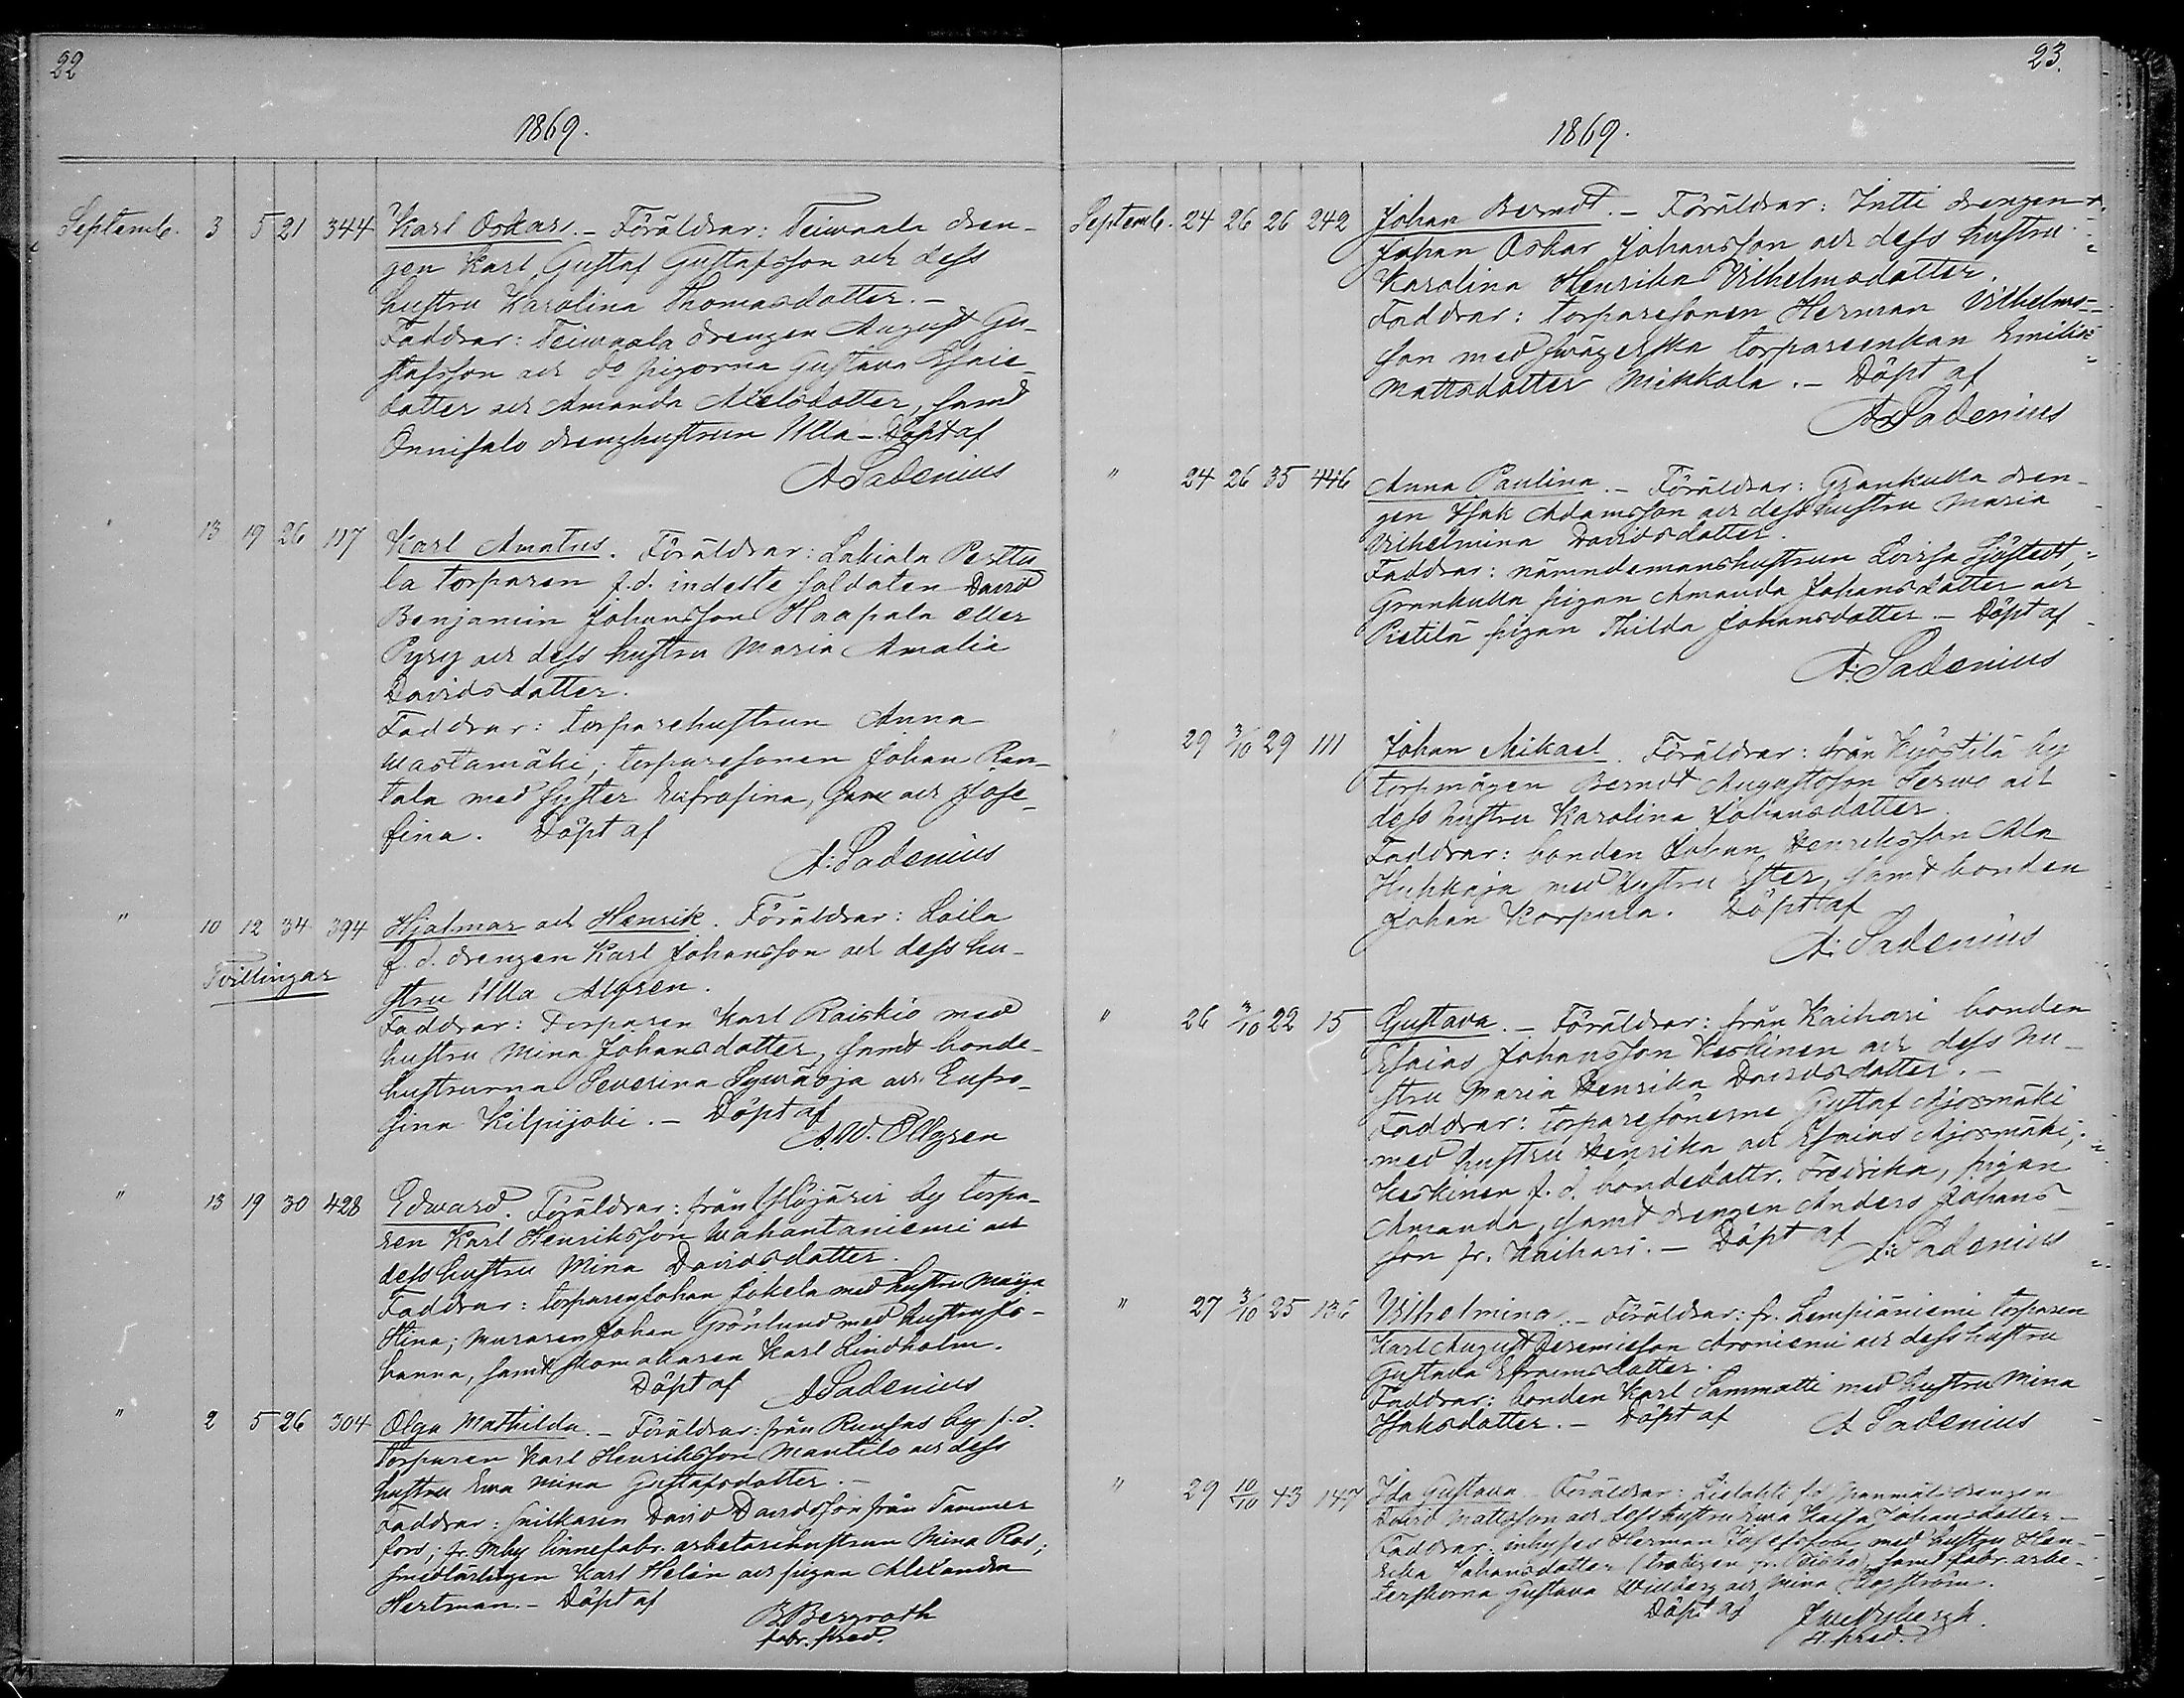 22
1869.
Septemb. 3 5 21 344 Karl Oskar. - Föräldrar: Teiwaala dren-
gen Karl Gustaf Gustafsson och dess
hustru Karolina Thomasdotter. -
Faddrar: Teiwaala drengen August Gu-
stafsson och do pigorna Gustava Esaie-
dotter och Amanda Axelsdotter, samt
Onnisalo drenghustrun Ulla - Döpt af
A Sadenius
" 13 19 26 117 Karl Amatus. Föräldrar: Lakiala Perttu
la torparen f.d. indelte soldaten David
Benjamin Johansson Haapala eller
Pyry och dess hustru Maria Amalia
Davidsdotter.
Faddrar: torparehustrun Anna
Wastamäki, torparesonen Johan Ran-
tala med syster Eufrosina, samt och Jose-
fina. Döpt af
A: Sadenius
" 10 12 34 394 Hjalmar och Henrik. Föräldrar: Laila
Tvillingar
f.d. drengen Karl Johansson och dess hu-
stru Ulla Algren.
Faddrar: Torparen Karl Raiskio med
hustru Mina Johansdotter, samt bonde-
hustrurna Severina Sywäoja och Eufro-
sina Kilpijoki. - Döpt af
A.W. Ellgren
" 13 19 30 428 Edward. Föräldrar: från Ylöjärvi by torpa-
ren Karl Henriksson Wahantaniemi och
dess hustru Mina Davidsdotter.
Faddrar: torparen Johan Jokela med hustru Maija
Stina; muraren Johan Grönlund med hustru Jo-
hanna, samt skomakaren Karl Lindholm.
Döpt af A Sadenius
" 2 5 26 304 Olga Mathilda. - Föräldrar: från Ruufas by f.d.
torparen Karl Henriksson Mantila och dess
hustru Ewa Mina Gustafsdotter. -
Faddrar: snikaren David Davidsson från Tammer
fors; fr. Mby linnefabr. arbetarehustrun Mina Ros;
smedlärlingen Karl Helén och pigan Alexandra
Hertman. - Döpt af
B Bergroth
fabr. pred.
23.
1869.
Septemb. 24 26 26 242 Johan Berndt. - Föräldrar: Intti drengen
Johan Oskar Johansson och dess hustru
Karolina Henrika Vilhelmsdotter.
Faddrar: torparesonen Herman Vilhelms-
son med swägerska torpareenkan Emilia
Mattsdotter Mikkola. - Döpt af
A Sadenius
" 24 26 35 446 Anna Paulina. - Föräldrar: Grankulla dren-
gen Isak Adamsson och dess hustru Maria
Vilhelmina Davidsdotter.
Faddrar: nämndemanshustrun Lovisa Sjöstedt,
Grankulla pigan Amanda Johansdotter och
Pietilä pigan Thilda Johansdotter. - Döpt af
A: Sadenius
" 29 3/10 29 111 Johan Mikael. Föräldrar: från Kyöstilä by
torpmågen Berndt Augustsson Serwo och
dess hustru Karolina Johansdotter.
Faddrar: bonden Johan Henriksson Ala
Huikkaja med hustru Ester, samt bonden
Johan Korpula. Döpt af
A: Sadenius
" 26 3/10 22 15 Gustava. - Föräldrar: från Kaihari bonden
Esaias Johansson Keskinen och dess hu-
stru Maria Henrika Davidsdotter. -
Faddrar: torparesönerne Gustaf Ajosmäki
med hustru Henrika och Esaias Ajosmäki,
Keskinen f.d. bondedottr. Fredrika, pigan
Amanda, samt drengen Anders Johans-
son fr. Kaihari. - Döpt af A: Sadenius
" 27 3/10 25 136 Vilhelmina. - Föräldrar: fr. Lempiäniemi torparen
Karl August Jeremiesson Aroniemi och dess hustru
Gustava Efraimsdotter.
Faddrar: bonden Karl Sammatti med hustru Mina
Isaksdotter. - Döpt af A Sadenius
" 29 10/10 43 147 Ida Gustava. Föräldrar: Lielahti f.d. drengen
David Mattsson och dess hustru Ewa Kaisa Johansdotter -
Faddrar: inhyses Herman Josefsson med hustru Hen-
rika Johansdotter samt fabr. arbe-
terskorna Gustava Willberg och Mina Hagström.
Döpt af